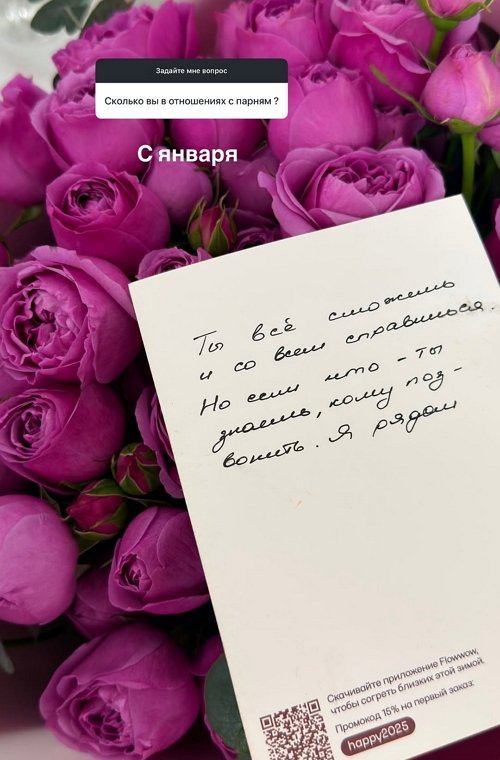 Задайте мне вопрос
Сколько вы в отношениях с парням ?
С января
Ты всё сможешь
и со всем справишься.
Но если что - ты
знаешь, кому поз -
вонить. Я рядом
Скачивайте приложение Flowwow,
чтобы согреть близких этой зимой.
Промокод 15% на первый заказ:
happy2025